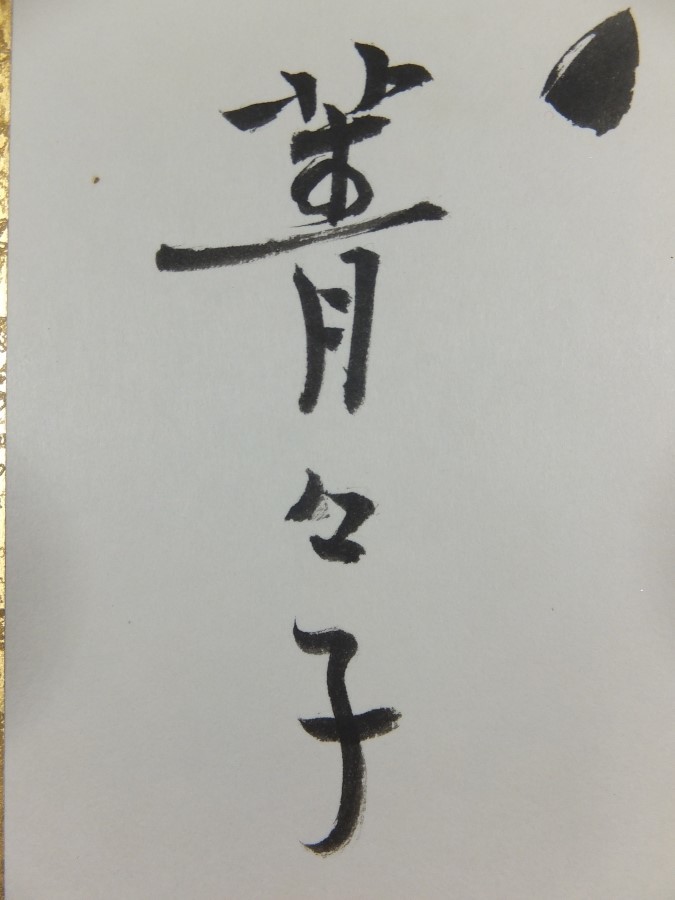 菁々子